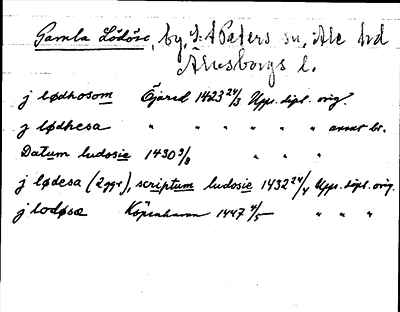 Gamla Lödöse, by, S:t Peters sn, Ale hd
Älvsborgs l.
j lødhosom Öjared 1423 24/3 Upps. dipl. orig.
j lødhesa " " " " " annat br.
Datum ludosie 1430 9/8 " " "
j lødesa (2 ggr), scriptum ludosie 1432 24/4 Upps. dipl. orig.
j lodøsæ Köpenhamn 1447 4/5 " " "